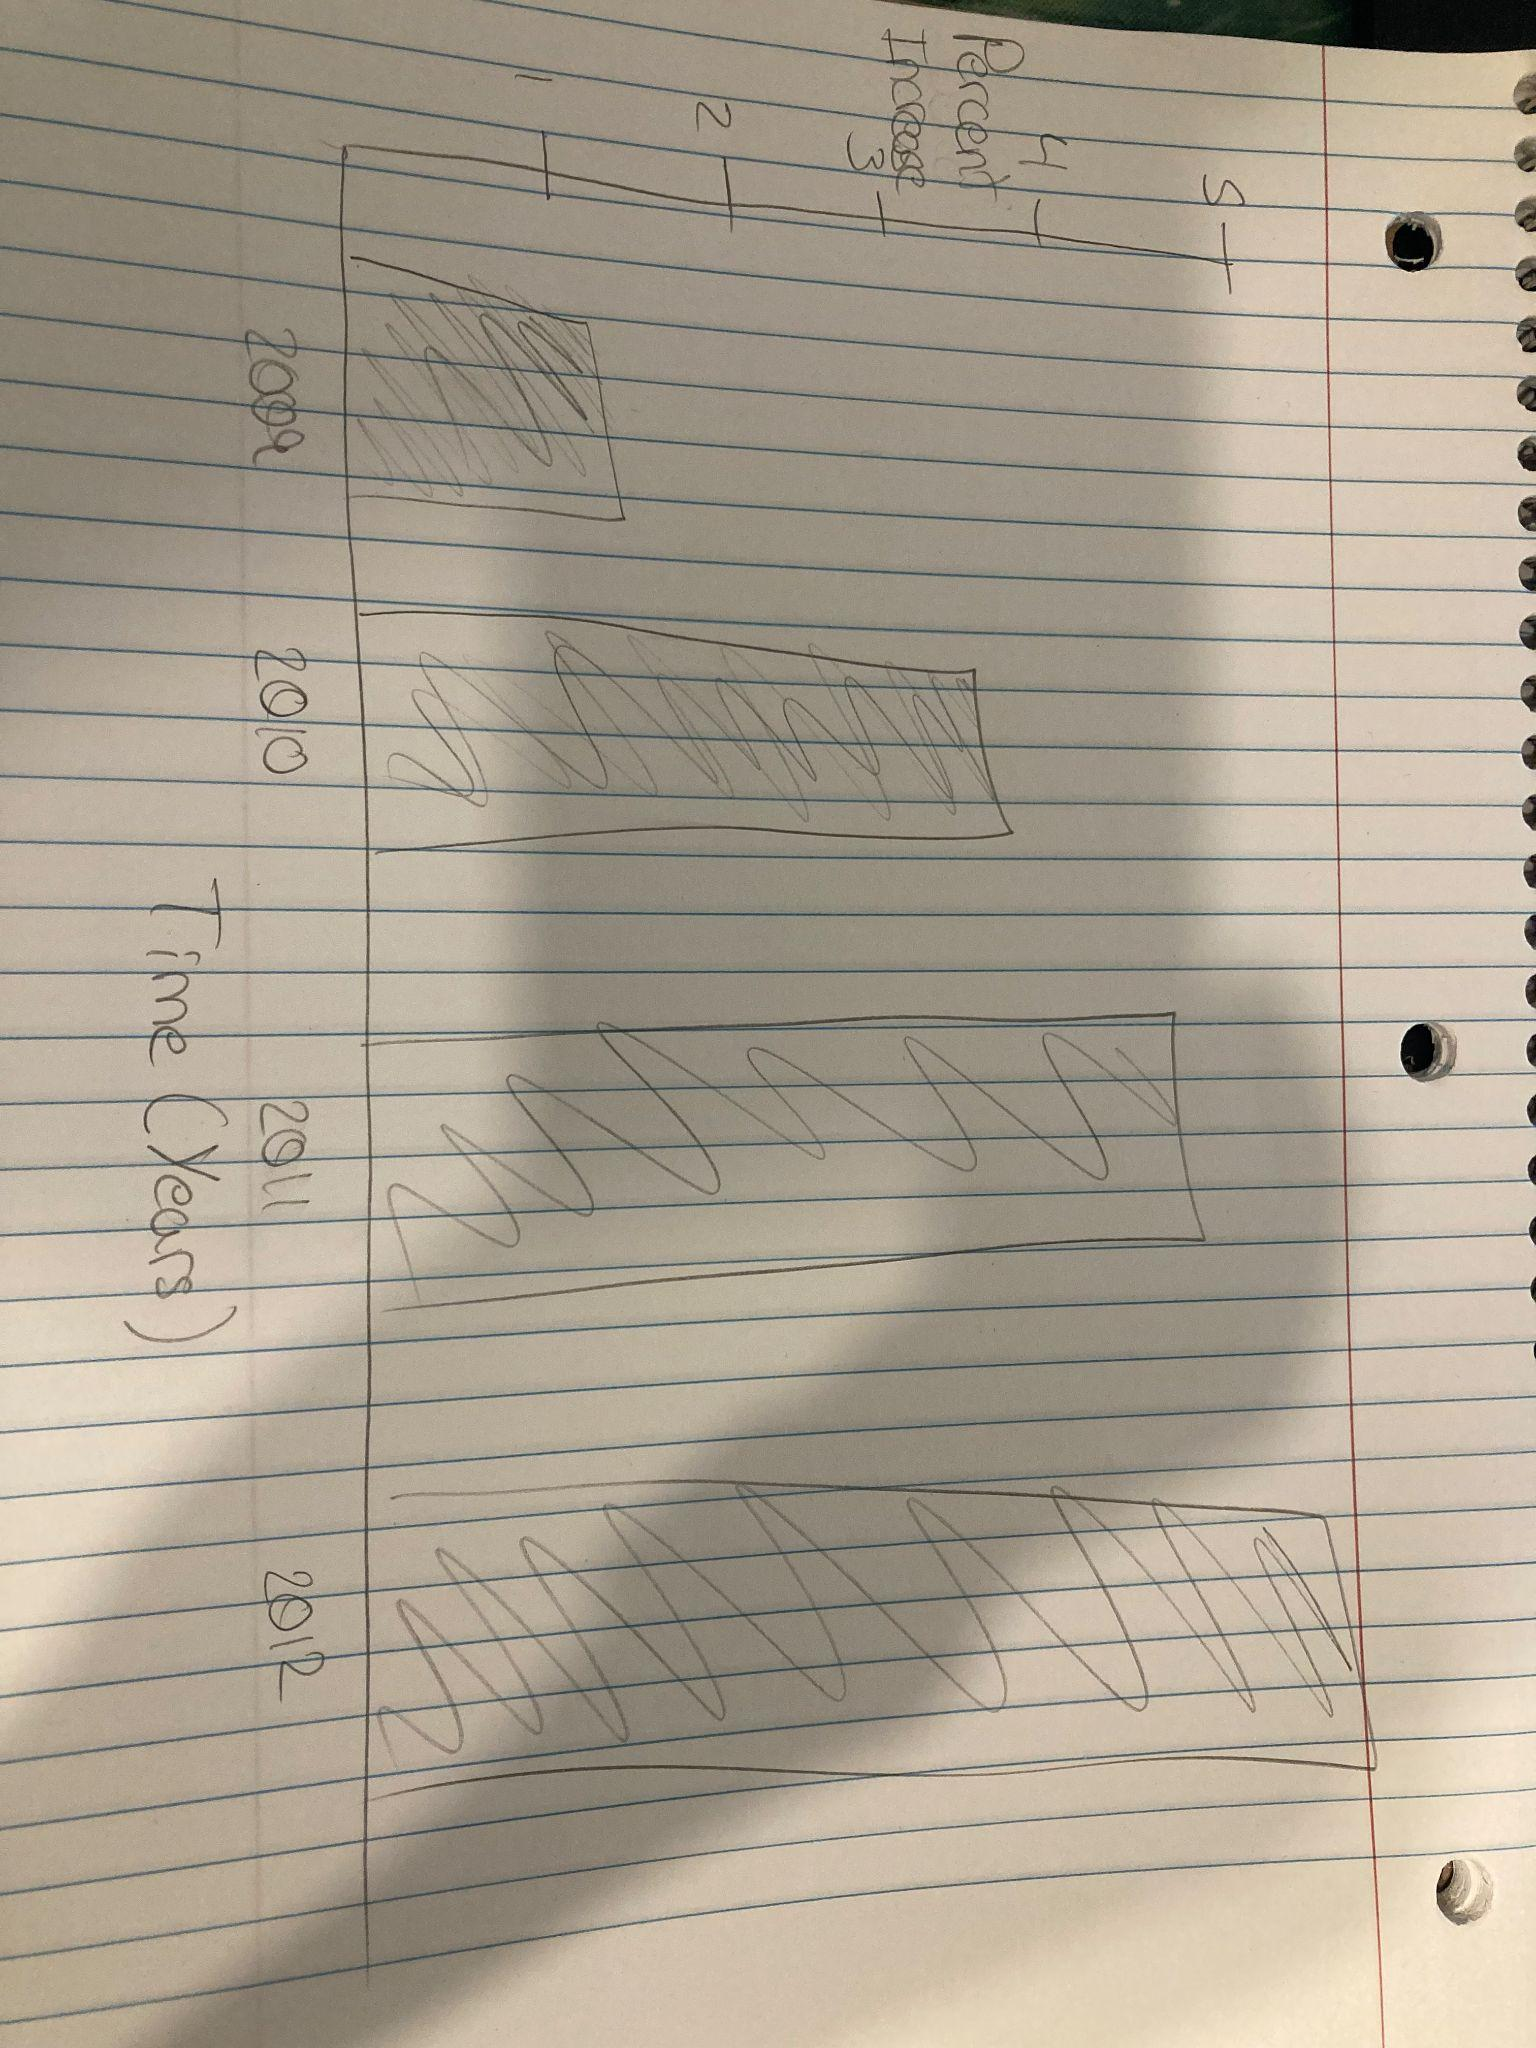 5
Percent
4
Increase
3
2
1
2009
2010
2011
2012
Time (Years)